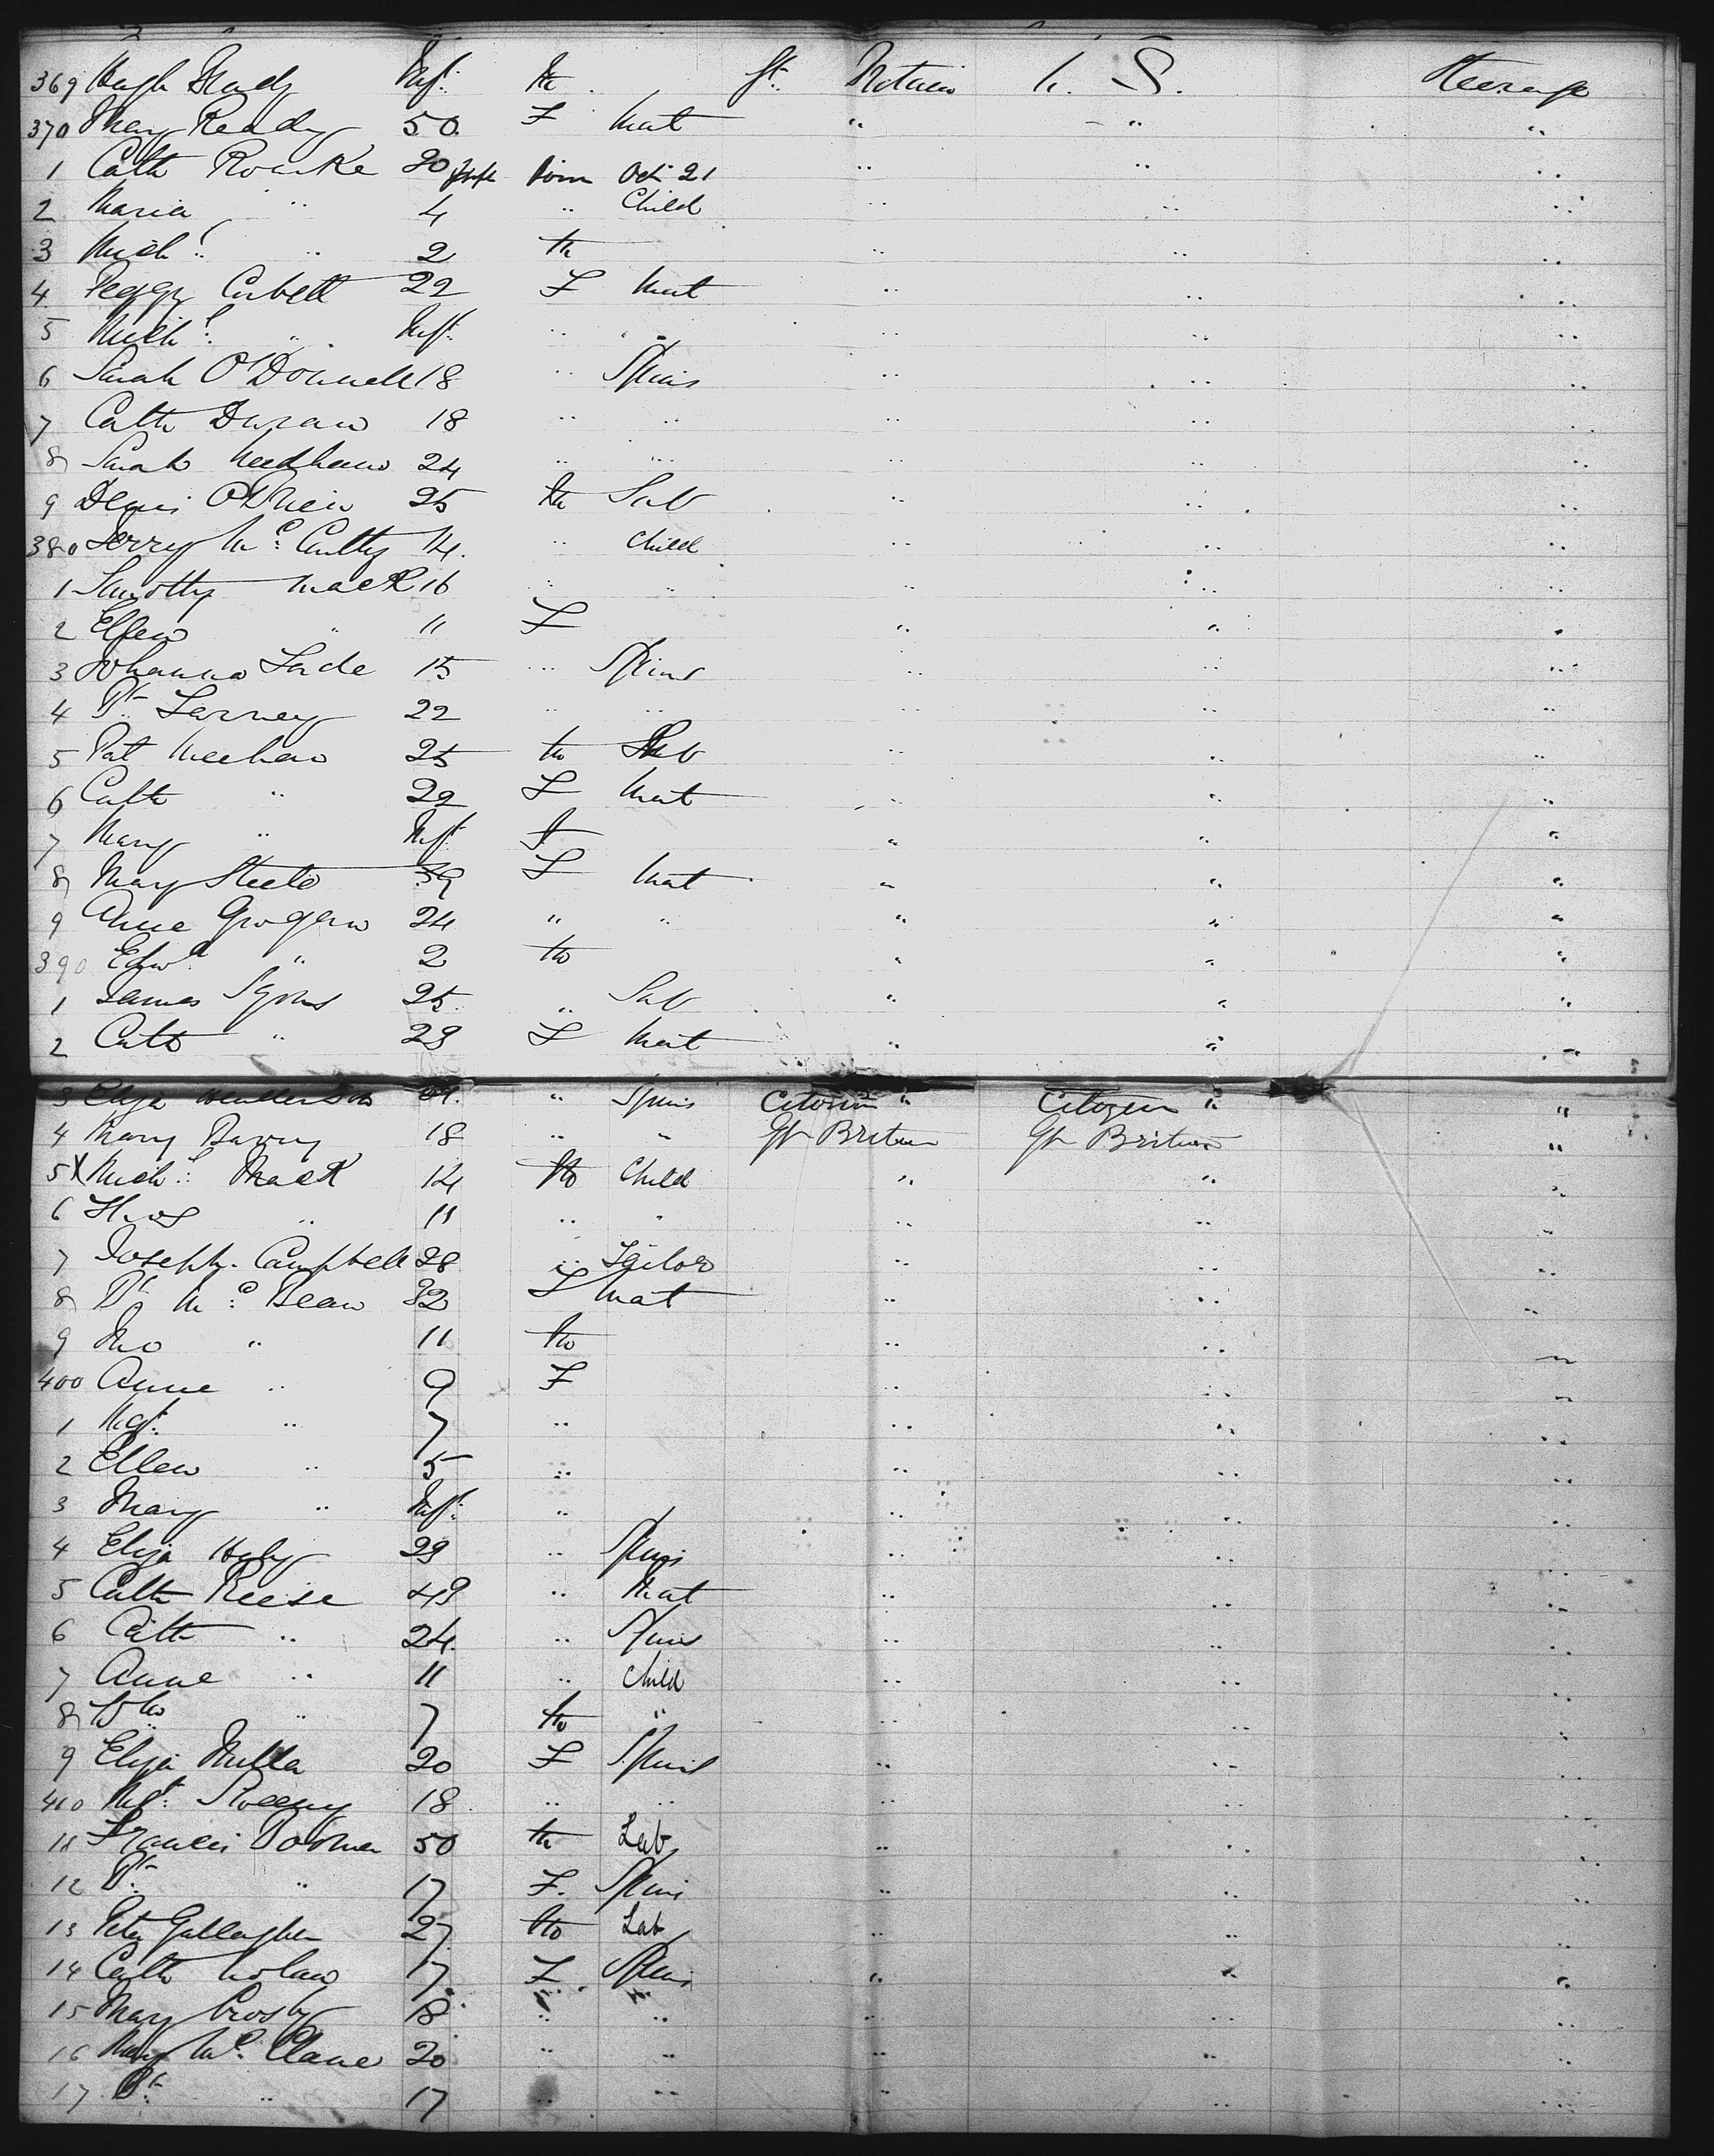 369 Hugh Inf. M Gt. Britain U. S. Steerage
370 Mary Ready 50 F Mat " " "
1 Cath Rourke 20 Inft born Oct 21 " " "
2 Maria " 4 " Child " " "
3 Michl " 2 M " " "
4 Peggy Corbett 22 F Mat " " "
5 Michl " Inft " " " " "
6 Sarah O'Donnell 18 " Spins " " "
7 Cath Duran 18 " " " " "
8 Sarah Needham 24 " " " " "
9 Denis O'Brien 25 M Lab " " "
380 Jerry Mc Carthy 14 " Child " " "
1 Timothy Mack 16 " " " " "
2 Ellen " 11 F " " "
3 Johanna 15 " Spins " " "
4 Bt 22 " " " " "
5 Pat Meehan 25 M Lab " " "
6 Cath " 22 F Mat " " "
7 Mary " Inft F " " "
8 Mary Steele 39 F Mat " " "
9 Anne Grogan 24 " " " " "
390 Edwd " 2 M " " "
1 James Lyons 25 " Lab " " "
2 Cath " 23 F Mat " " "
3 Eliza Henderson " Spins Citizen " Citizen " "
4 Mary Barry 18 " " Gt Britain Gt Britain "
5 X Michl Mack 14 M Child " " "
6 Thos " 11 " " " " "
7 Joseph Campbell 28 " Tailor " " "
8 Bt Mc Bean 32 F Mat " " "
9 Jno " 11 M " " "
400 Anne " 9 F " " "
1 Mgt " 7 " " " "
2 Ellen " 5 " " " "
3 Mary " Inft " " " "
4 Eliza 29 " Spins " " "
5 Cath Reese 49 " Mat " " "
6 Cath " 24 " Spins " " "
7 Anne " 11 " Child " " "
8 Wm " 7 M " " " "
9 Eliza 20 F Spins " " "
410 Mgt Sweeny 18 " " " " "
11 Francis 50 M Lab " " "
12 Bt " 17 F. Spins " " "
13 Peter Gallagher 27 M Lab " " "
14 Cath Nolan 17 F Spins " " "
15 Mary Crosby 18 " " " " "
16 Mary Mc Clane 20 " " " " "
17 Bt " 17 " " " " "